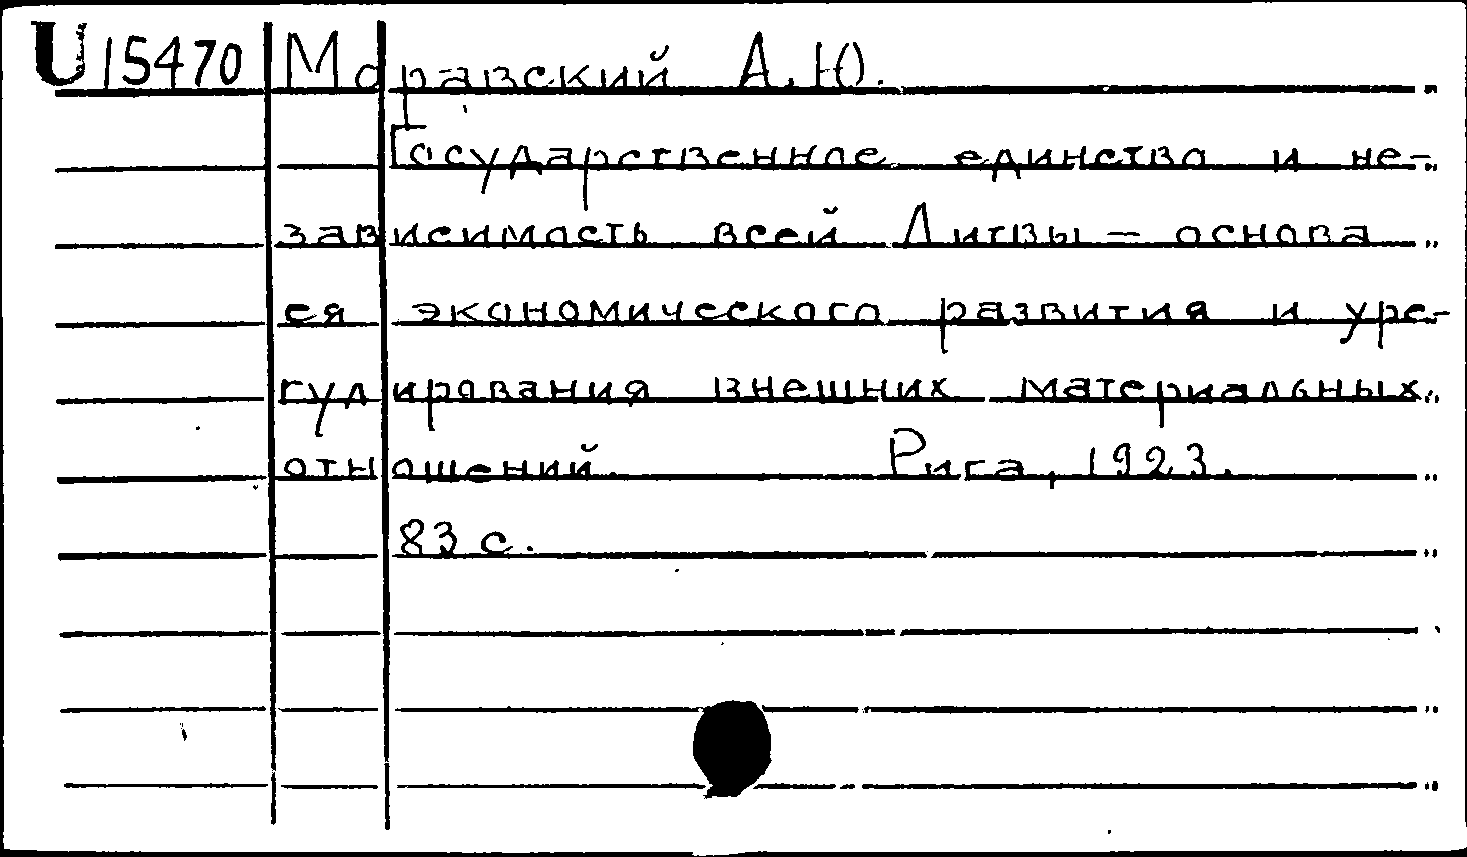 U 15470 Моравский А.Ю.
Государственное единство и не-
зависимость всей Литвы – основа
ея экономического развития и уре-
гулирования внешних материальных
отношений. Рига, 1923.
83 с.